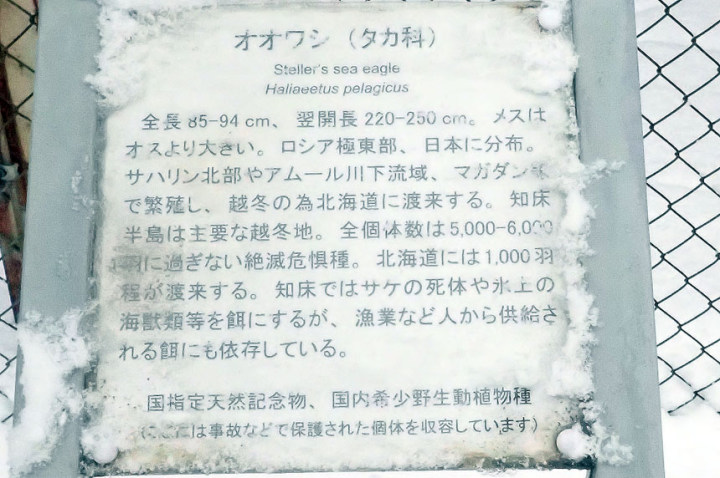 オオワシ（タカ科）
Steller's sea eagle
Haliaeetus pelagicus
全長 85-94 cm、翌開長 220-250 cm。メスは
オスより大きい。ロシア極東部、日本に分布。
サハリン北部やアムール川下流域、マガダン
で繁殖し、越冬の為北海道に渡来する。知床
半島は主要な越冬地。全個体数は 5,000-6,000
羽に過ぎない絶滅危惧種。北海道には 1,000 羽
程が渡来する。知床ではサケの死体や氷上の
海獣類等を餌にするが、漁業など人から供給さ
れる餌にも依存している。
国指定天然記念物、国内希少野生動植物種
（ここには事故などで保護された個体を収容しています）